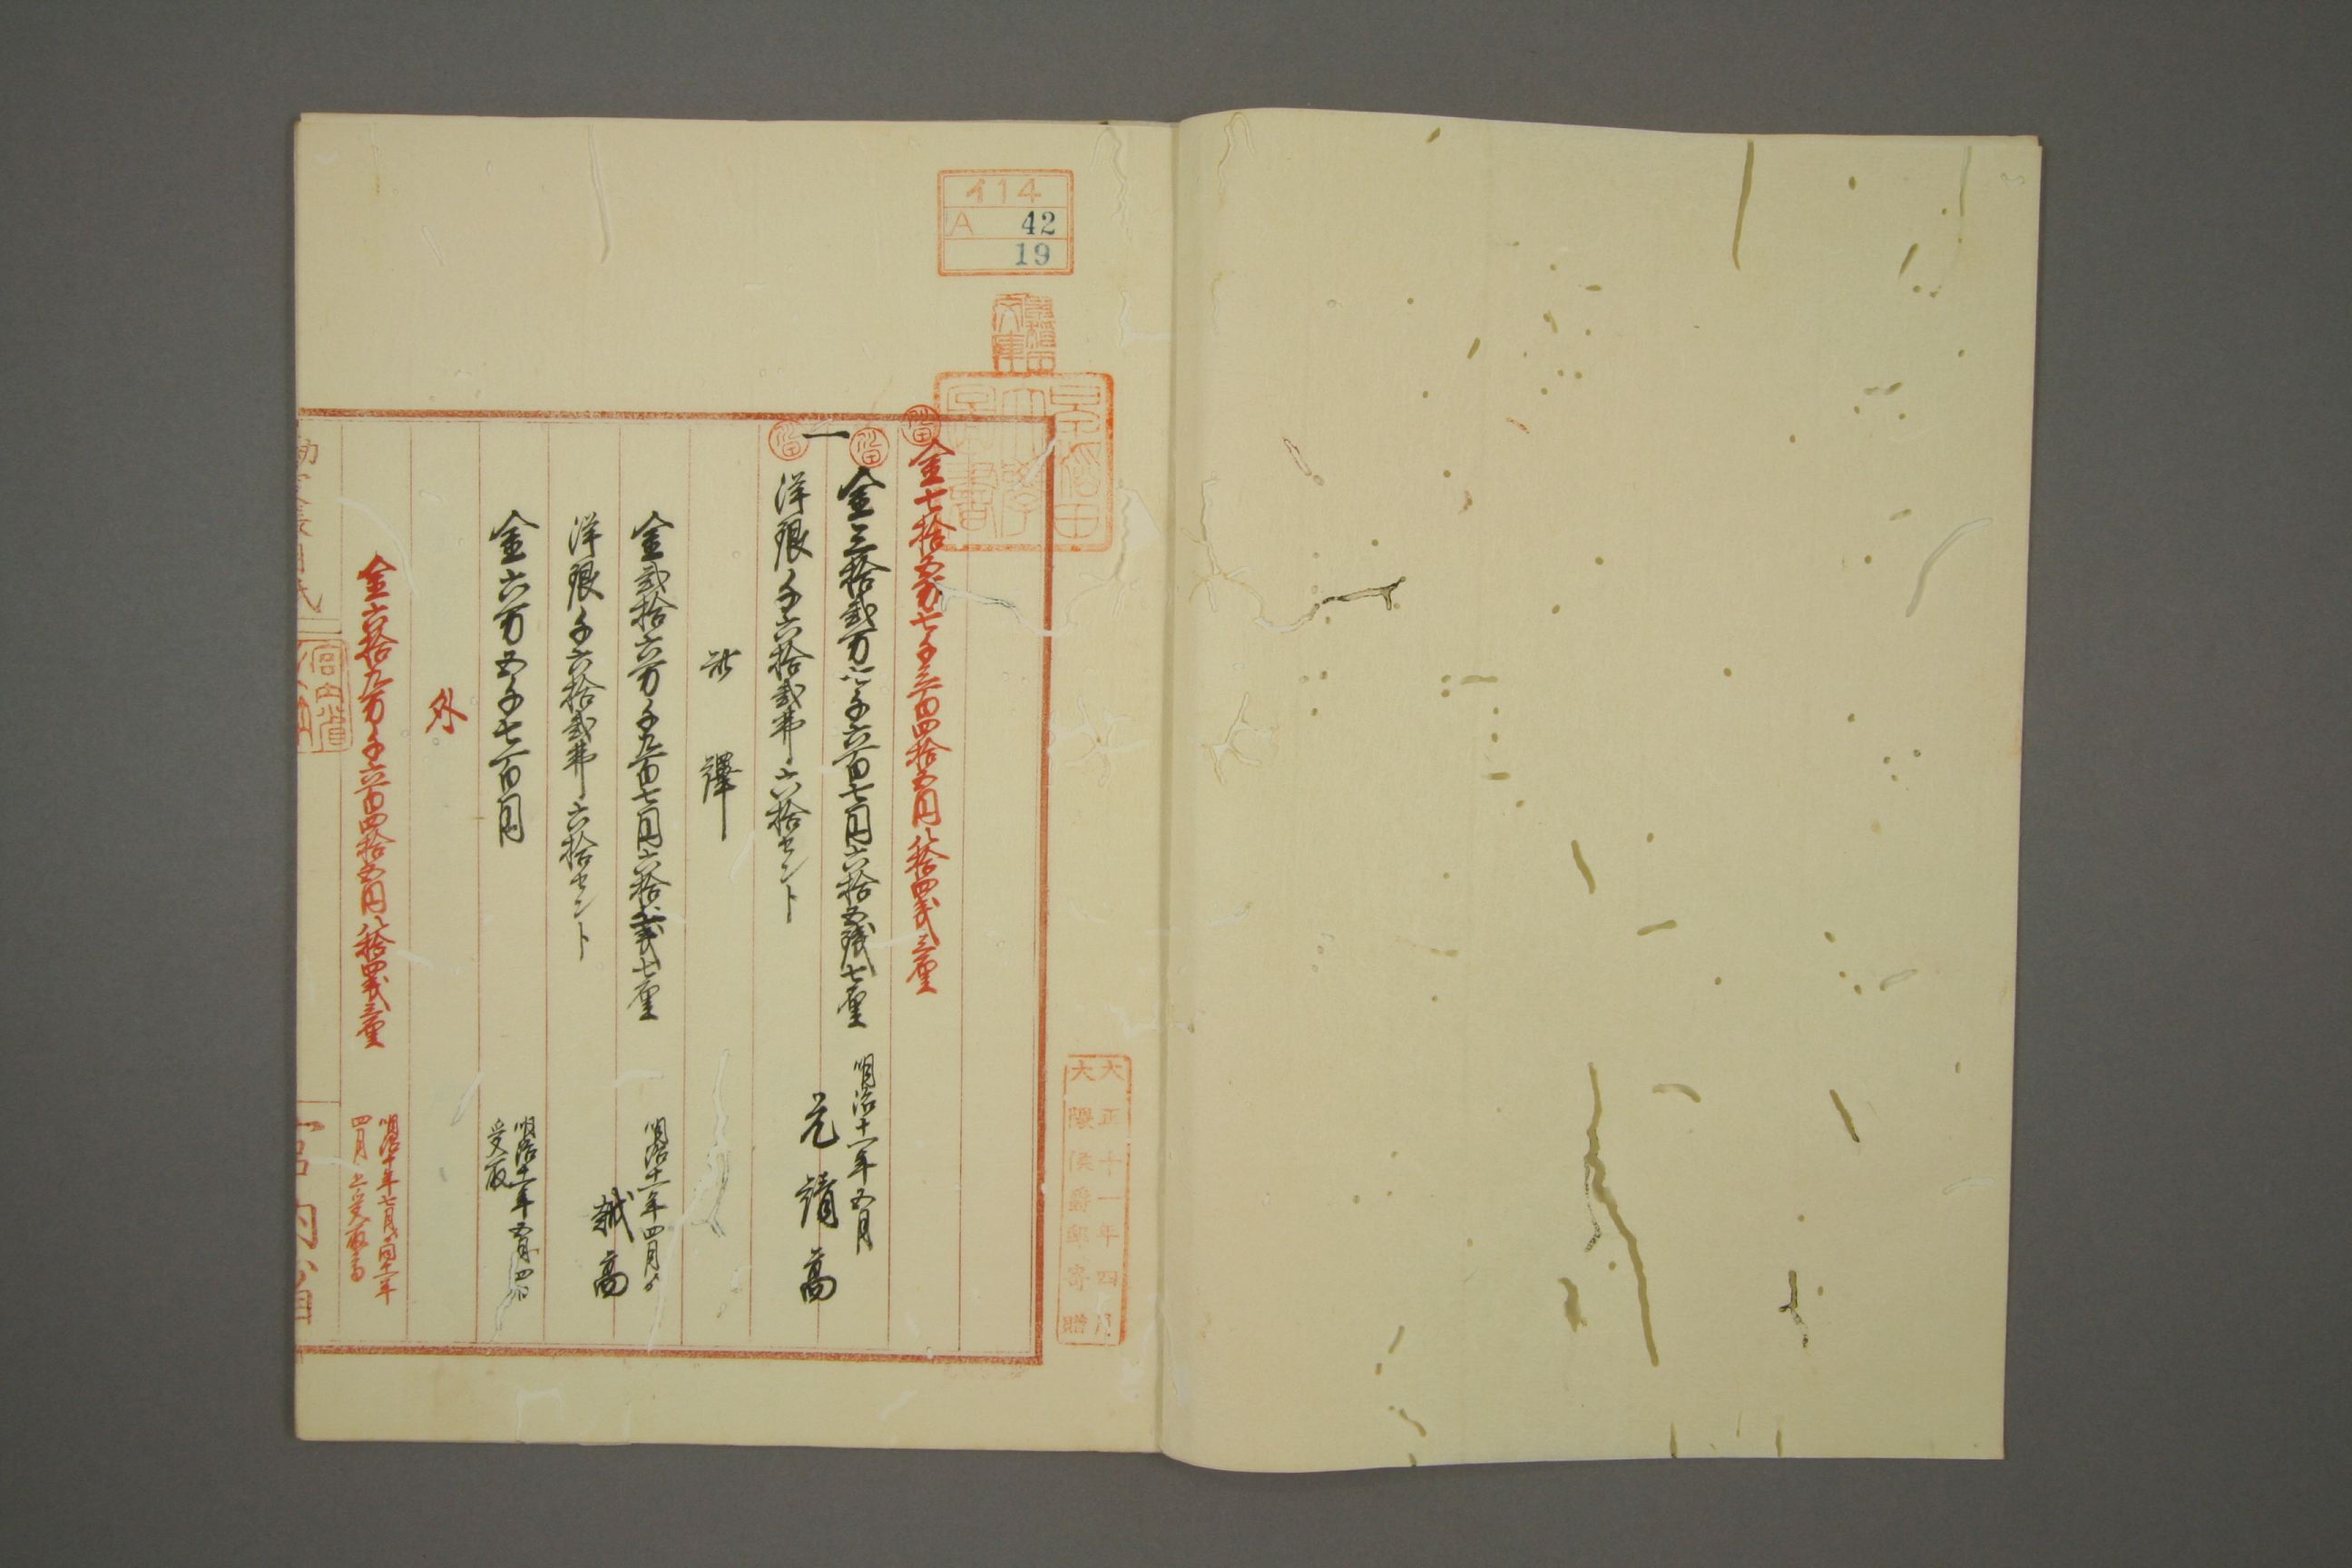 イ14
A 42
19
早稲田文庫
早稲田大學圖書
大正十一年四月
大隈侯爵邸寄贈
金七拾五万七千三百四拾五円八拾四銭三厘
一 金三拾弐万七千六百七円六拾五銭七厘 明治十一年五月
洋銀千六拾弐弗六拾セント 元請高
此譯
金弐拾六万千九百七円六拾五銭七厘 明治十一年四月ゟ
洋銀千六拾弐弗六拾セント 越高
金六万五千七百円 明治十一年五月四日
受取
外
金六拾九万千六百四拾五円八拾四銭三厘 明治十年七月ゟ同十一年
四月迄受取高
宮内省
宮内省